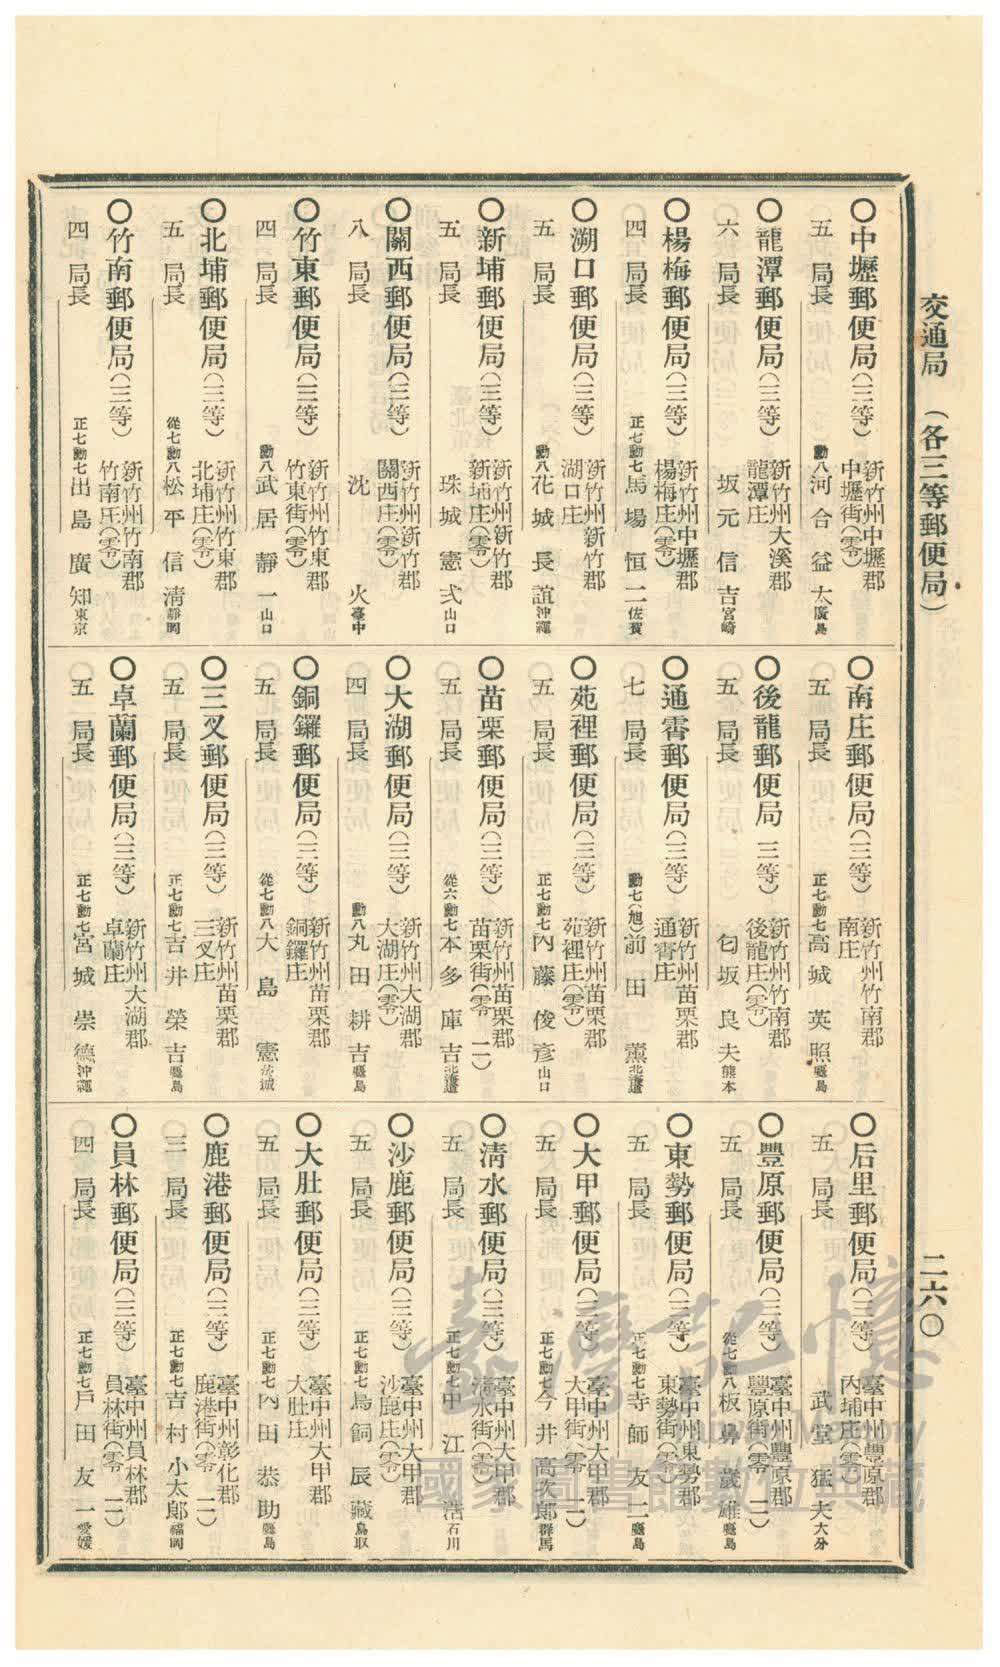 交通局 (各三等郵便局)
二六〇
〇中壢郵便局(三等) 新竹州中壢郡中壢街(零)
五 局長 勳八 河合益太 廣島
〇龍潭郵便局(三等) 新竹州大溪郡龍潭庄
六 局長 坂元信吉 宮崎
〇楊梅郵便局(三等) 新竹州中壢郡楊梅庄(零)
四 局長 正七勳七 馬場恒二 佐賀
〇湖口郵便局(三等) 新竹州新竹郡湖口庄
五 局長 勳八 花城長誼 沖繩
〇新埔郵便局(三等) 新竹州新竹郡新埔庄(零)
五 局長 珠城憲弍 山口
〇關西郵便局(三等) 新竹州新竹郡關西庄(零)
八 局長 沈火 臺中
〇竹東郵便局(三等) 新竹州竹東郡竹東街(零)
四 局長 勳八 武居靜一 山口
〇北埔郵便局(三等) 新竹州竹東郡北埔庄(零)
五 局長 從七勳八 松平信淸 靜岡
〇竹南郵便局(三等) 新竹州竹南郡竹南庄(零)
四 局長 正七勳七 出島廣知 東京
〇南庄郵便局(三等) 新竹州竹南郡南庄
五 局長 正七勳七 高城英照 鹿兒島
〇後龍郵便局 三等) 新竹州竹南郡後龍庄(零)
五 局長 匂坂良夫 熊本
〇通霄郵便局(三等) 新竹州苗栗郡通霄庄
七 局長 勳七(旭) 前田薰 北海道
〇苑裡郵便局(三等) 新竹州苗栗郡苑裡庄(零)
五 局長 正七勳七 內藤俊彥 山口
〇苗栗郵便局(三等) 新竹州苗栗郡苗栗街(零 二)
五 局長 從六勳七 本多庫吉 北海道
〇大湖郵便局(三等) 新竹州大湖郡大湖庄(零)
四 局長 勳八 丸田耕吉 鹿兒島
〇銅鑼郵便局(三等) 新竹州苗栗郡銅鑼庄
五 局長 從七勳八 大島憲 茨城
〇三叉郵便局(三等) 新竹州苗栗郡三叉庄
五 局長 正七勳七 吉井榮吉 鹿兒島
〇卓蘭郵便局(三等) 新竹州大湖郡卓蘭庄
五 局長 正七勳七 宮城崇德 沖繩
〇后里郵便局(三等) 臺中州豐原郡內埔庄(零)
五 局長 武堂猛夫 大分
〇豐原郵便局(三等) 臺中州豐原郡豐原街(零 三)
五 局長 從七勳八 板鼻歲雄 鹿兒島
〇東勢郵便局(三等) 臺中州東勢郡東勢街(零)
五 局長 正七勳七 寺師友二 鹿兒島
〇大甲郵便局(三等) 臺中州大甲郡大甲街(零 二)
五 局長 正七勳七 今井高次郎 群馬
〇淸水郵便局(三等) 臺中州大甲郡淸水街(零 二)
五 局長 正七勳七 中江浩 石川
〇沙鹿郵便局(三等) 臺中州大甲郡沙鹿庄(零)
五 局長 正七勳七 鳥飼辰藏 鳥取
〇大肚郵便局(三等) 臺中州大甲郡大肚庄
五 局長 正七勳七 內田恭助 鹿兒島
〇鹿港郵便局(三等) 臺中州彰化郡鹿港街(零 二)
三 局長 正七勳七 吉村小太郎 福岡
〇員林郵便局(三等) 臺中州員林郡員林街(零 二)
四 局長 正七勳七 戶田友一 愛媛
臺灣記憶
Taiwan Memory
國家圖書館數位典藏